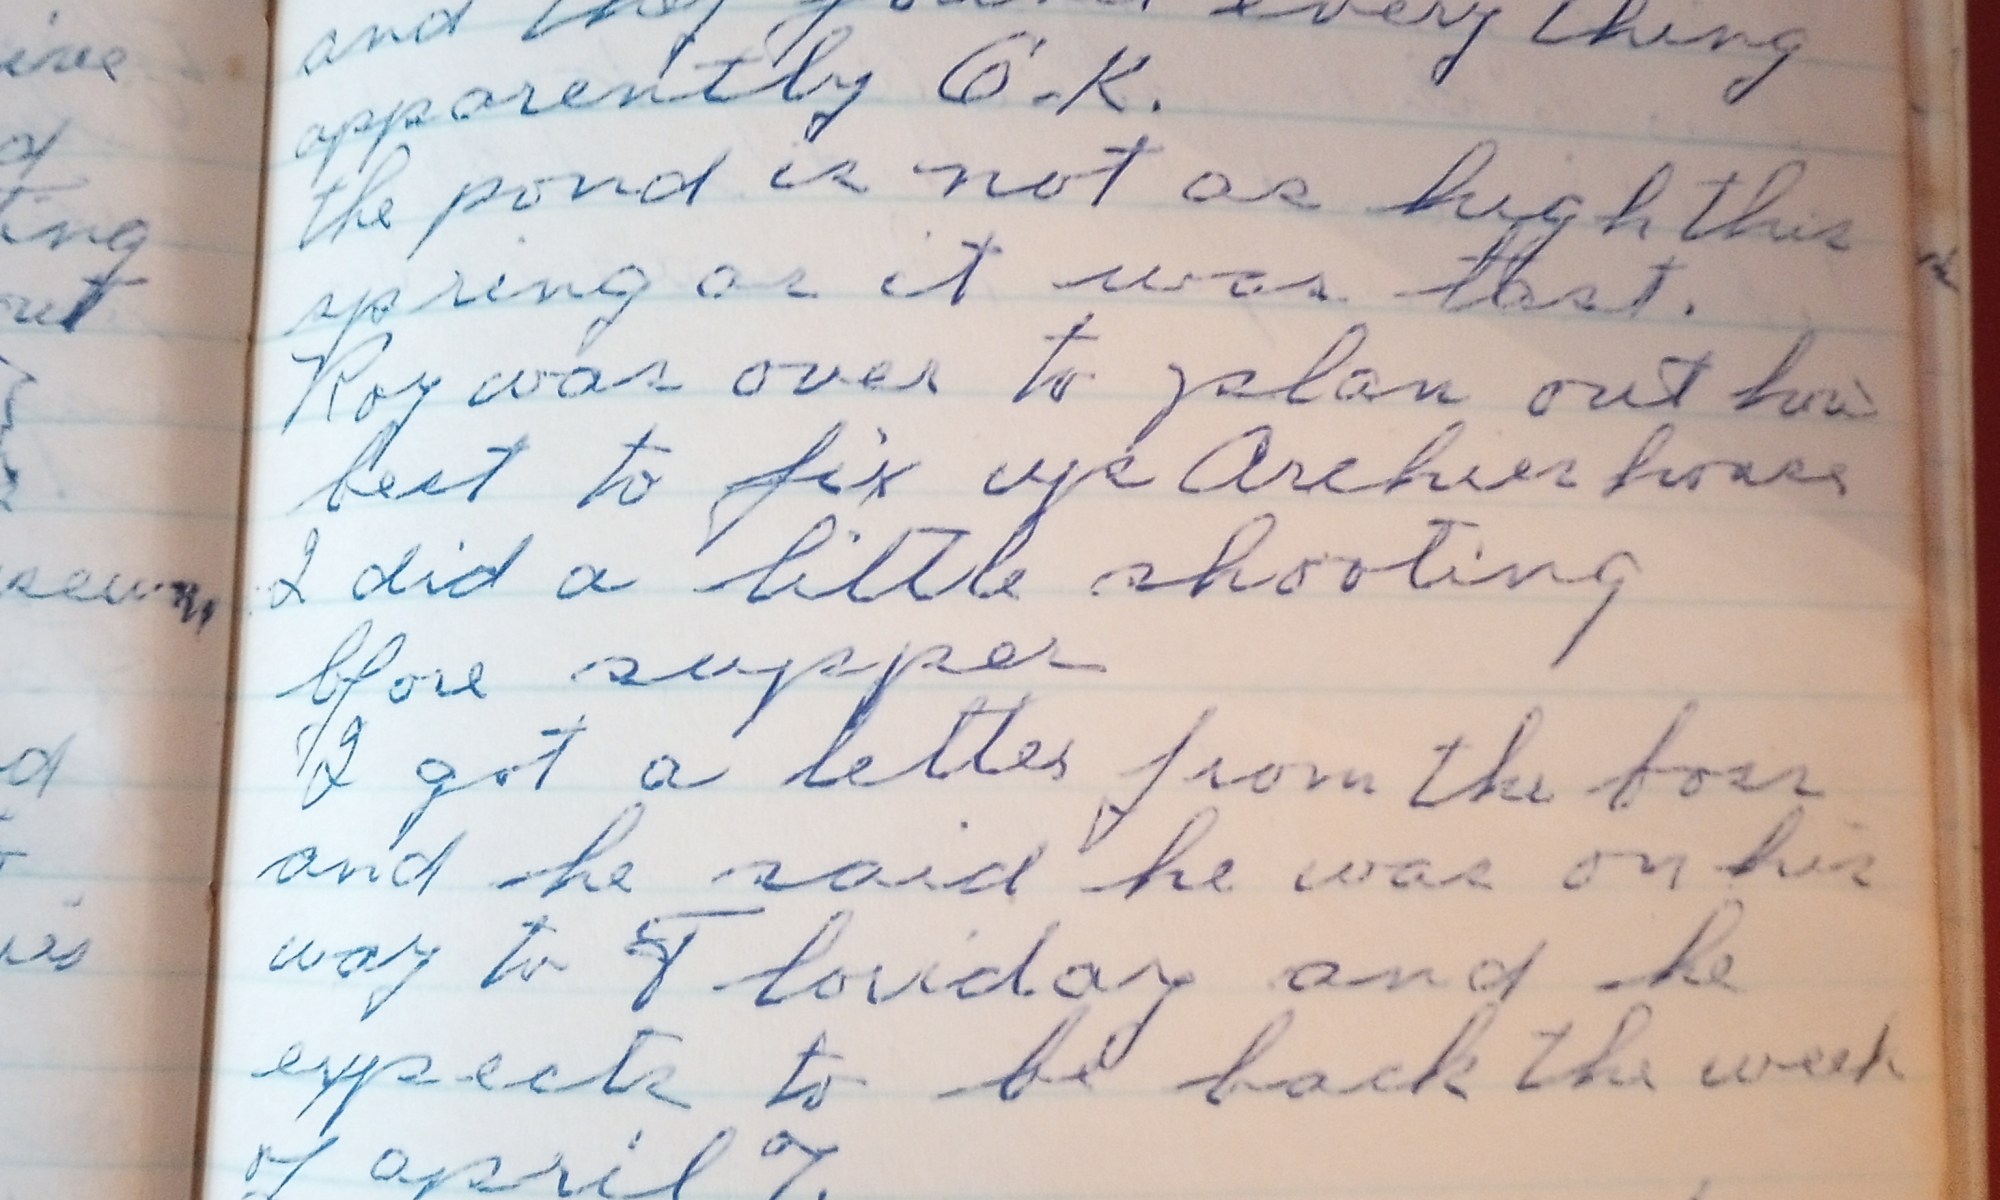 and they found every thing
apparently O.K.
the pond is not as high this
spring as it was last.
Roy was over to plan out how
best to fix up Archies house
I did a little shooting
bfore supper
I got a letter from the boss
and he said he was on his
way to Floriday and he
expects to be back the week
of april 7.
ting
out